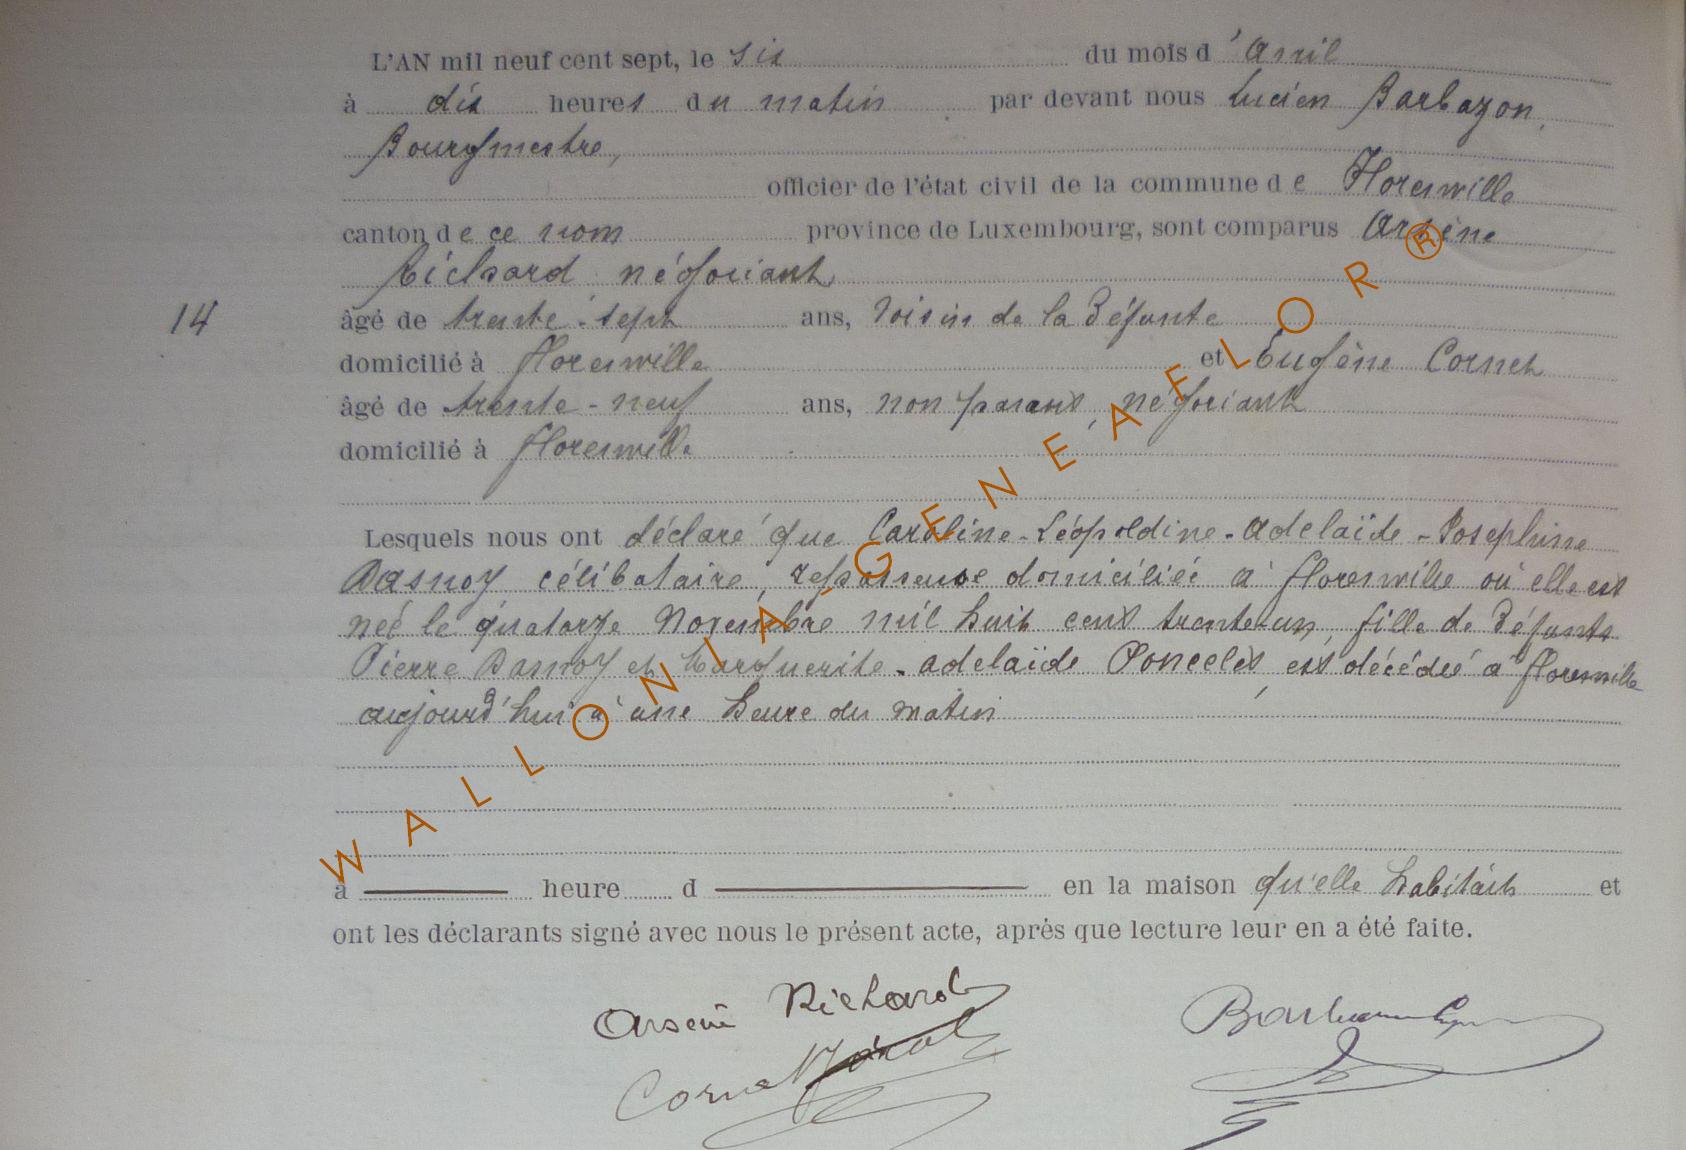 L'AN mil neuf cent sept, le six du mois d'avril
à dix heures du matin par devant nous Lucien Barbazon,
Bourgmestre,
officier de l'état civil de la commune de Florenville
canton de ce nom province de Luxembourg, sont comparus Arsène
Richard négociant
14 âgé de trente-sept ans, voisin de la défunte
domicilié à Florenville et Eugène Cornet
âgé de trente-neuf ans, non parent, négociant
domicilié à Florenville
Lesquels nous ont déclaré que Caroline-Léopoldine-Adelaïde-Josephine
Dasnoy célibataire, repasseuse domiciliée à Florenville où elle est
née le quatorze Novembre mil huit cent trente-un, fille de défunts
Pierre Dasnoy et Marguerite-Adelaïde Poncelet est décédée à Florenville
aujourd'hui à une heure du matin
à heure d en la maison qu'elle habitait et
ont les déclarants signé avec nous le présent acte, après que lecture leur en a été faite.
Arsène Richard
Cornet
WALLONIA GENEAFLOR ®